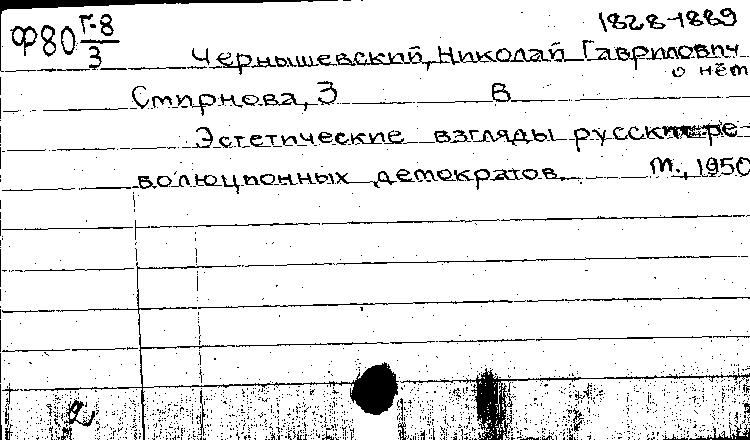 Ф80 Г-8/3
1828-1889
Чернышевский, Николай Гаврилович
о нём
Смирнова, З В
Эстетические взгляды русских ре
волюционных демократов. М., 1950